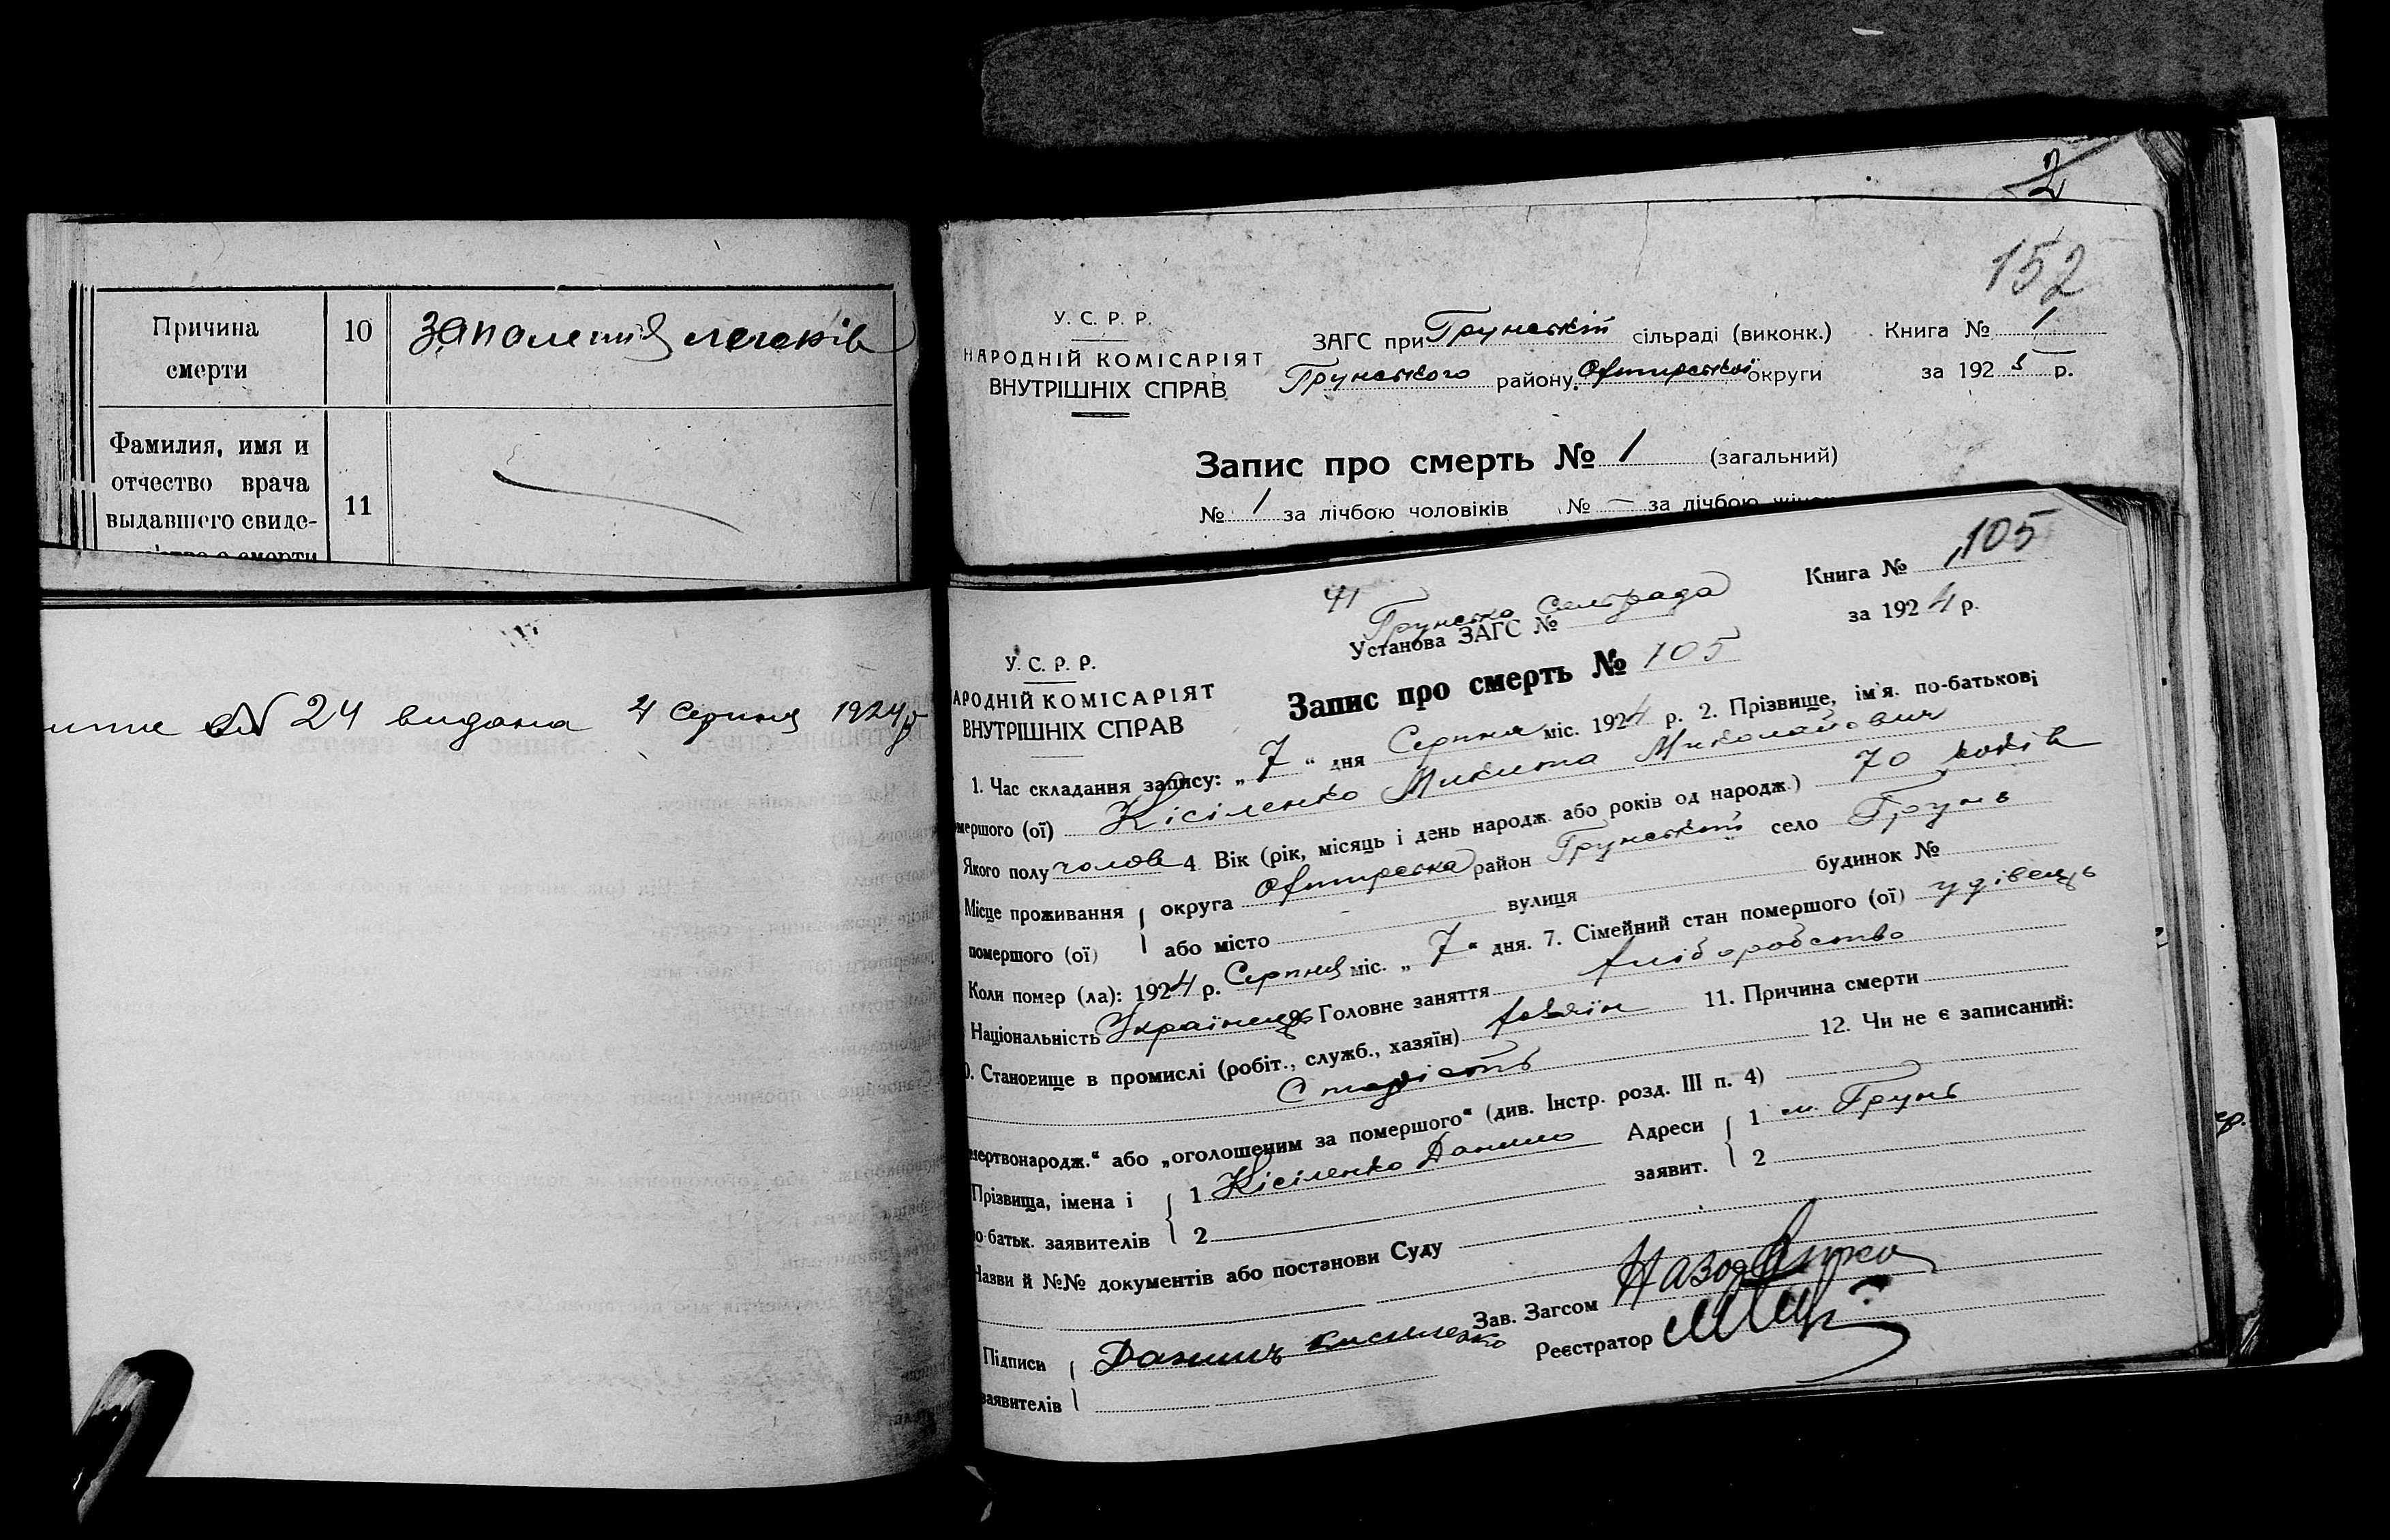 Причина смерти 10 Запалення легенів
Фамилия, имя и отчество врача выдавшего свиде- 11
№ 24 видана 4 Серпня 1924 р
2
152
У. С. Р. Р.
НАРОДНІЙ КОМІСАРІЯТ
ВНУТРІШНІХ СПРАВ
ЗАГС при Грунській сільраді (виконк.) Книга № 1
Грунського району, Охтирської округи за 1925 р.
Запис про смерть № 1 (загальний)
№ 1 за лічбою чоловіків № — за лічбою
105
41
Грунська Сельрада
Установа ЗАГС № Книга №
за 1924 р.
У. С. Р. Р.
АРОДНІЙ КОМІСАРІЯТ
ВНУТРІШНІХ СПРАВ
Запис про смерть № 105
1. Час складання запису: „7“ дня Серпня міс. 1924 р. 2. Прізвище, ім'я. по-батькові
мершого (ої) Кісіленко Микита Миколайович
Якого полу чолов 4. Вік (рік, місяць і день народж. або років од народж.) 70 років
Місце проживання округа Охтирська район Грунський село Грунь
помершого (ої) або місто вулиця будинок №
Коли помер (ла): 1924 р. Серпня міс. „7“ дня. 7. Сімейний стан помершого (ої) удівець
Національність Українець Головне заняття хліборобство
0. Становище в промислі (робіт., служб., хазяїн) хазяїн 11. Причина смерти
Старість 12. Чи не є записаний:
мертвонародж.“ або „оголошеним за помершого“ (див. Інстр. розд. III п. 4)
Прізвища, імена і 1 Кісіленко Данило Адреси 1 м. Грунь
о-батьк. заявителів 2 заявит. 2
Назви й №№ документів або постанови Суду
Зав. Загсом
Підписи Данило Кисиленко Реєстратор
заявителів